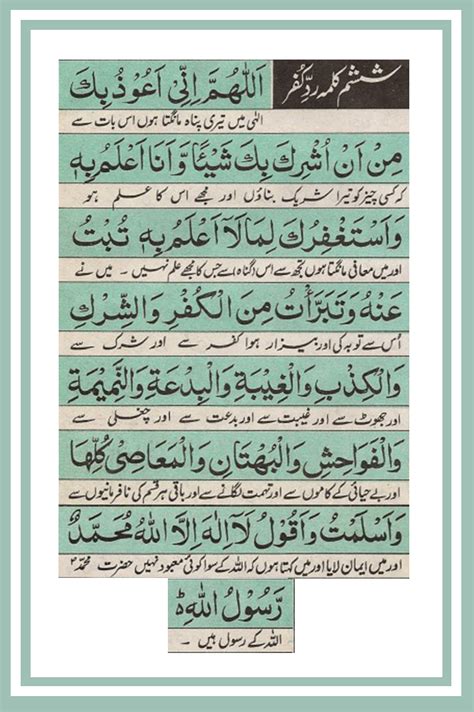 ششم کلمہ ردِّ کفر
اَللّٰهُمَّ اِنِّیْٓ اَعُوْذُ بِكَ
الٰہی میں تیری پناہ مانگتا ہوں اس بات سے
مِنْ اَنْ اُشْرِكَ بِكَ شَیْئًا وَّاَنَا اَعْلَمُ بِهٖ
کہ کسی چیز کو تیرا شریک بناؤں اور مجھے اس کا علم ہو
وَاَسْتَغْفِرُكَ لِمَا لَآ اَعْلَمُ بِهٖ تُبْتُ
اور میں معافی مانگتا ہوں تجھ سے اس (گناہ) سے جس کا مجھے علم نہیں ۔ میں نے
عَنْهُ وَتَبَرَّأْتُ مِنَ الْكُفْرِ وَالشِّرْكِ
اُس سے توبہ کی اور بیزار ہوا کفر سے اور شرک سے
وَالْكِذْبِ وَالْغِیْبَةِ وَالْبِدْعَةِ وَالنَّمِیْمَةِ
اور جھوٹ سے اور غیبت سے اور بدعت سے اور چغلی سے
وَالْفَوَاحِشِ وَالْبُهْتَانِ وَالْمَعَاصِیْ كُلِّهَا
اور بے حیائی کے کاموں سے اور تہمت لگانے سے اور باقی ہر قسم کی نافرمانیوں سے
وَاَسْلَمْتُ وَاَقُوْلُ لَآ اِلٰهَ اِلَّا اللّٰهُ مُحَمَّدٌ
اور میں ایمان لایا اور میں کہتا ہوں کہ اللہ کے سوا کوئی معبود نہیں حضرت محمدؐ
رَّسُوْلُ اللّٰهِ ؕ
اللہ کے رسول ہیں ۔